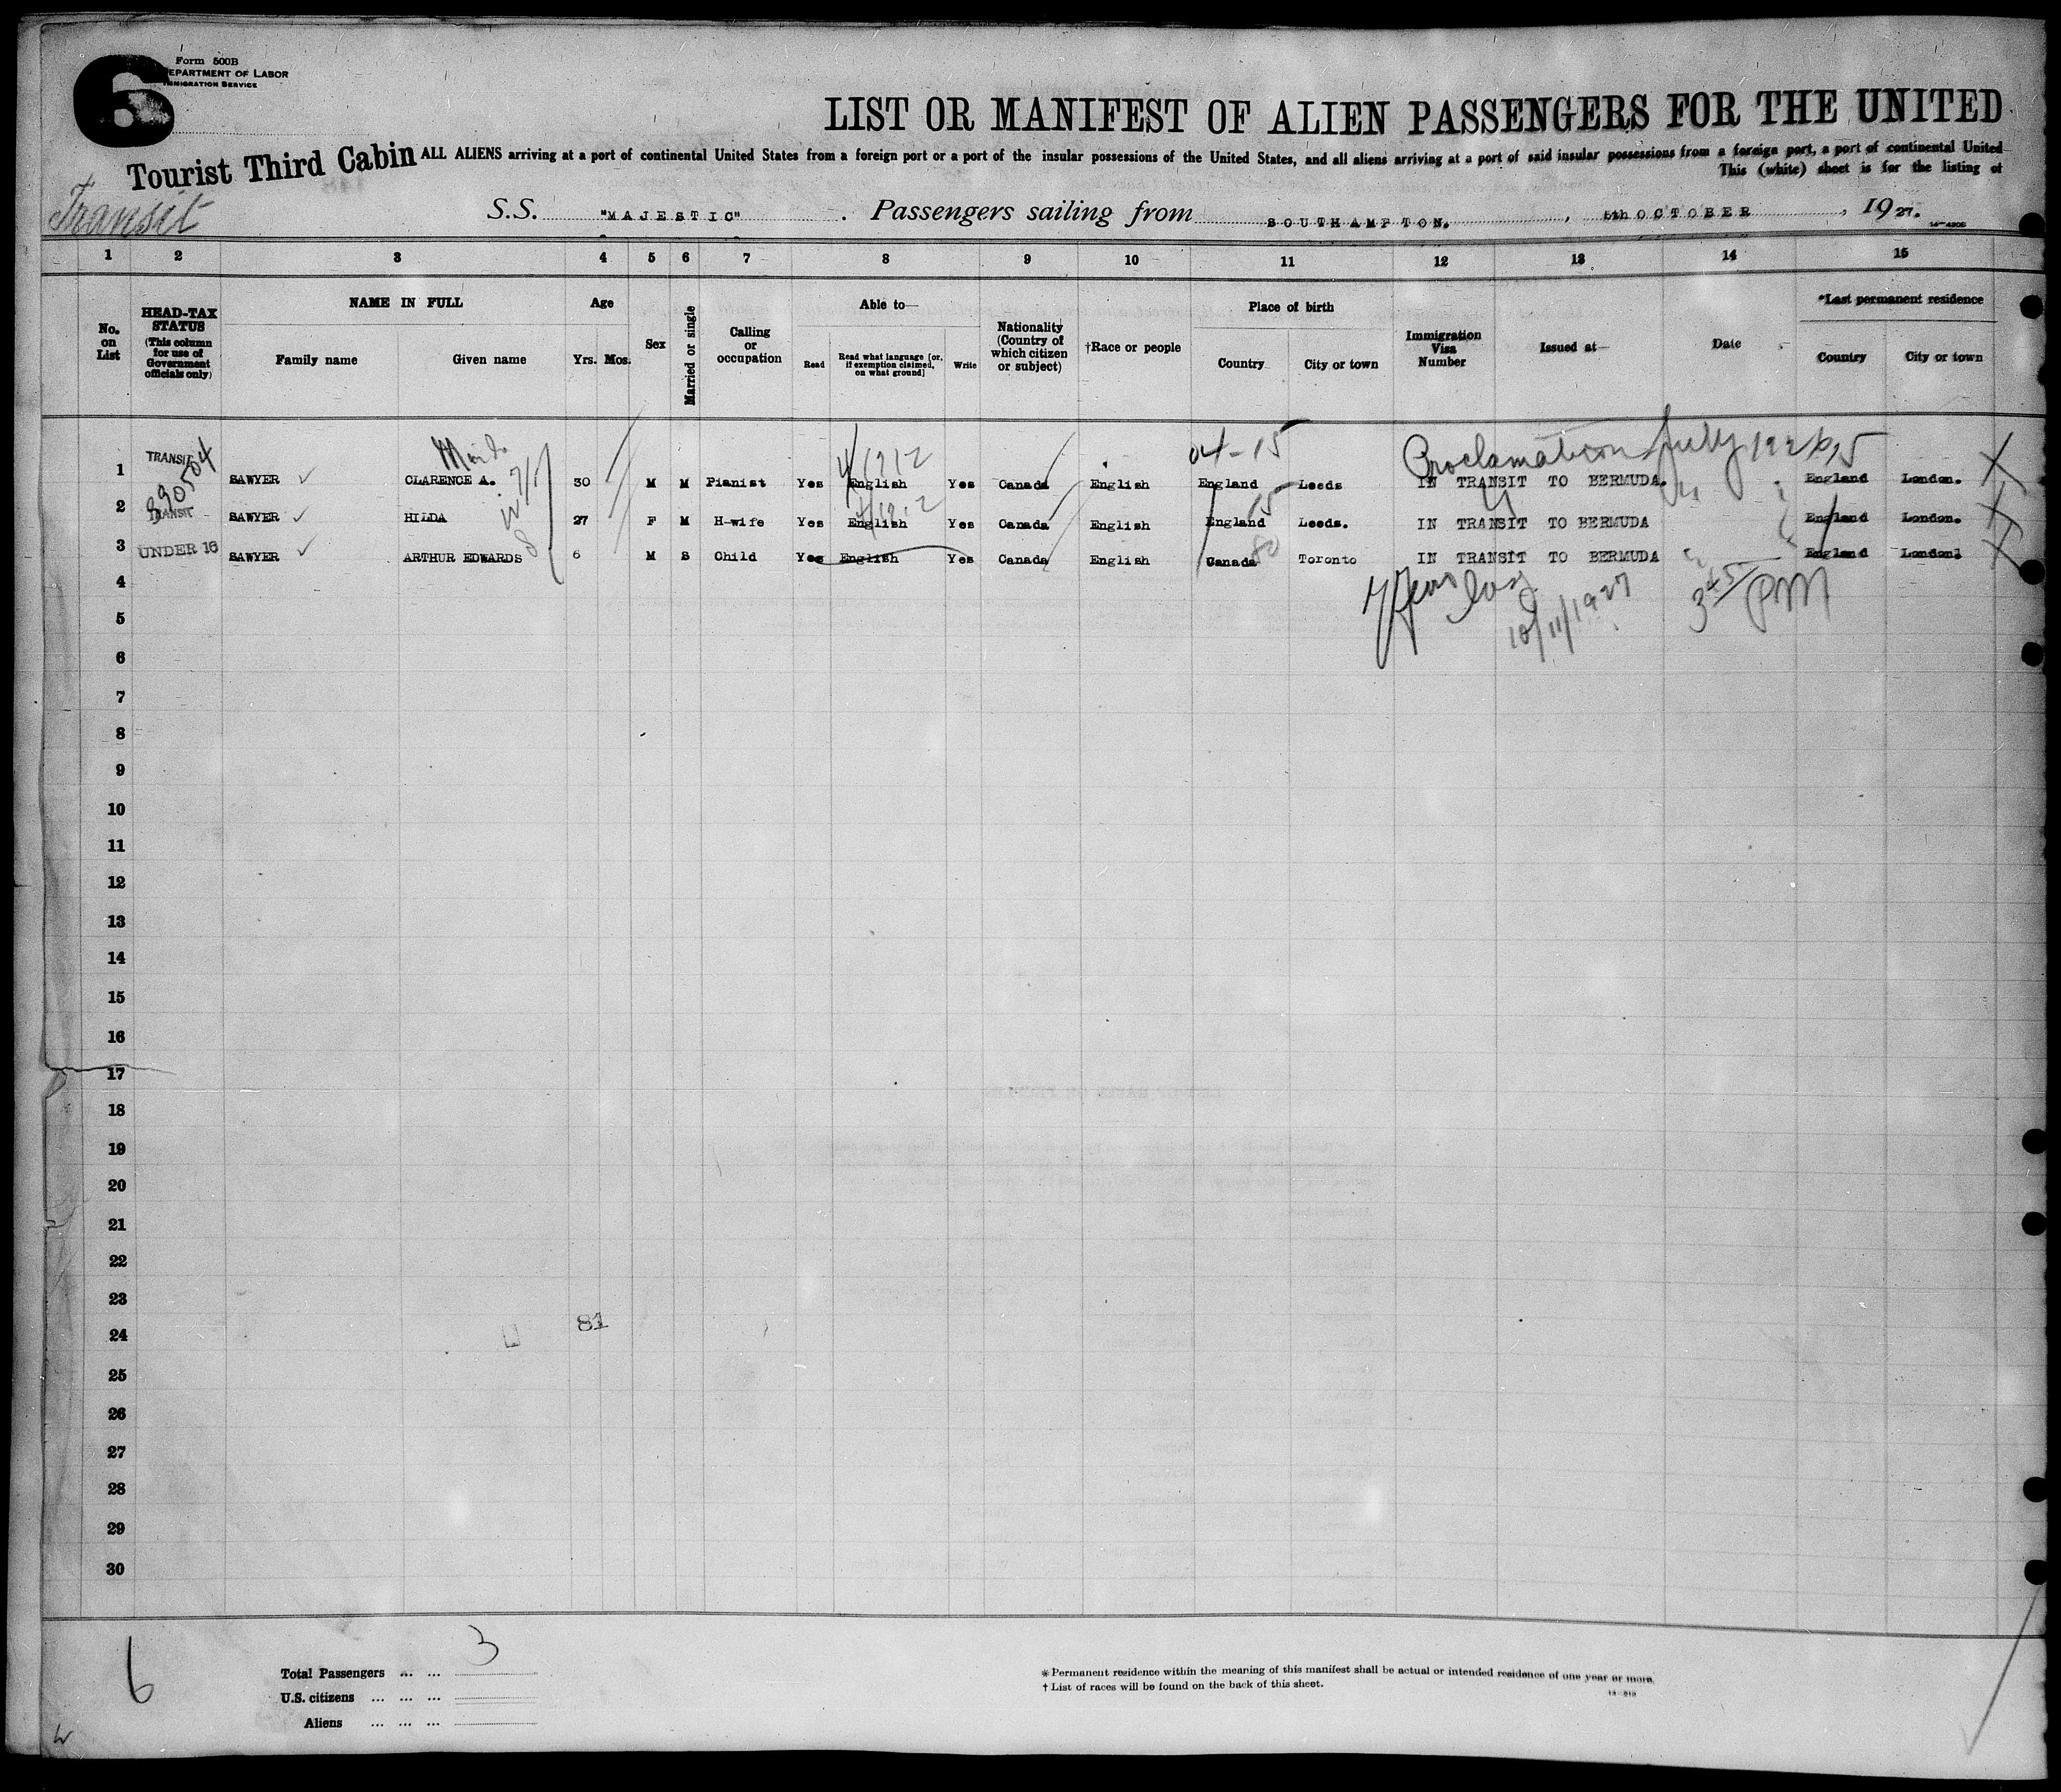 6
Form 500B
DEPARTMENT OF LABOR
IMMIGRATION SERVICE
LIST OR MANIFEST OF ALIEN PASSENGERS FOR THE UNITED
Tourist Third Cabin
ALL ALIENS arriving at a port of continental United States from a foreign port or a port of the insular possessions of the United States, and all aliens arriving at a port of said insular possessions from a foreign port, a port of continental United
This (white) sheet is for the listing of
Transit
S.S. "MAJESTIC" . Passengers sailing from SOUTHAMPTON. , 5th OCTOBER , 1927.
1 2 3 4 5 6 7 8 9 10 11 12 13 14 15
No. on List
HEAD-TAX STATUS (This column for use of Government officials only)
NAME IN FULL
Family name Given name
Age
Yrs. Mos.
Sex
Married or single
Calling or occupation
Able to—
Read Read what language [or, if exemption claimed, on what ground] Write
Nationality (Country of which citizen or subject)
†Race or people
Place of birth
Country City or town
Immigration Visa Number
Issued at—
Date
*Last permanent residence
Country City or town
04-15 Proclamation July 192
1 TRANSIT SAWYER CLARENCE A. 30 M M Pianist Yes English Yes Canada English England Leeds IN TRANSIT TO BERMUDA. England London.
890504
2 TRANSIT SAWYER HILDA 27 F M H-wife Yes English Yes Canada English England Leeds. IN TRANSIT TO BERMUDA England London.
3 UNDER 16 SAWYER ARTHUR EDWARDS 6 M S Child Yes English Yes Canada English Canada Toronto IN TRANSIT TO BERMUDA England London.
4
10/11/1927 3 45 PM
5
6
7
8
9
10
11
12
13
14
15
16
17
18
19
20
21
22
23
81
24
25
26
27
28
29
30
6
3
Total Passengers ... ...
U.S. citizens ... ... ...
Aliens ... ... ...
* Permanent residence within the meaning of this manifest shall be actual or intended residence of one year or more.
† List of races will be found on the back of this sheet.